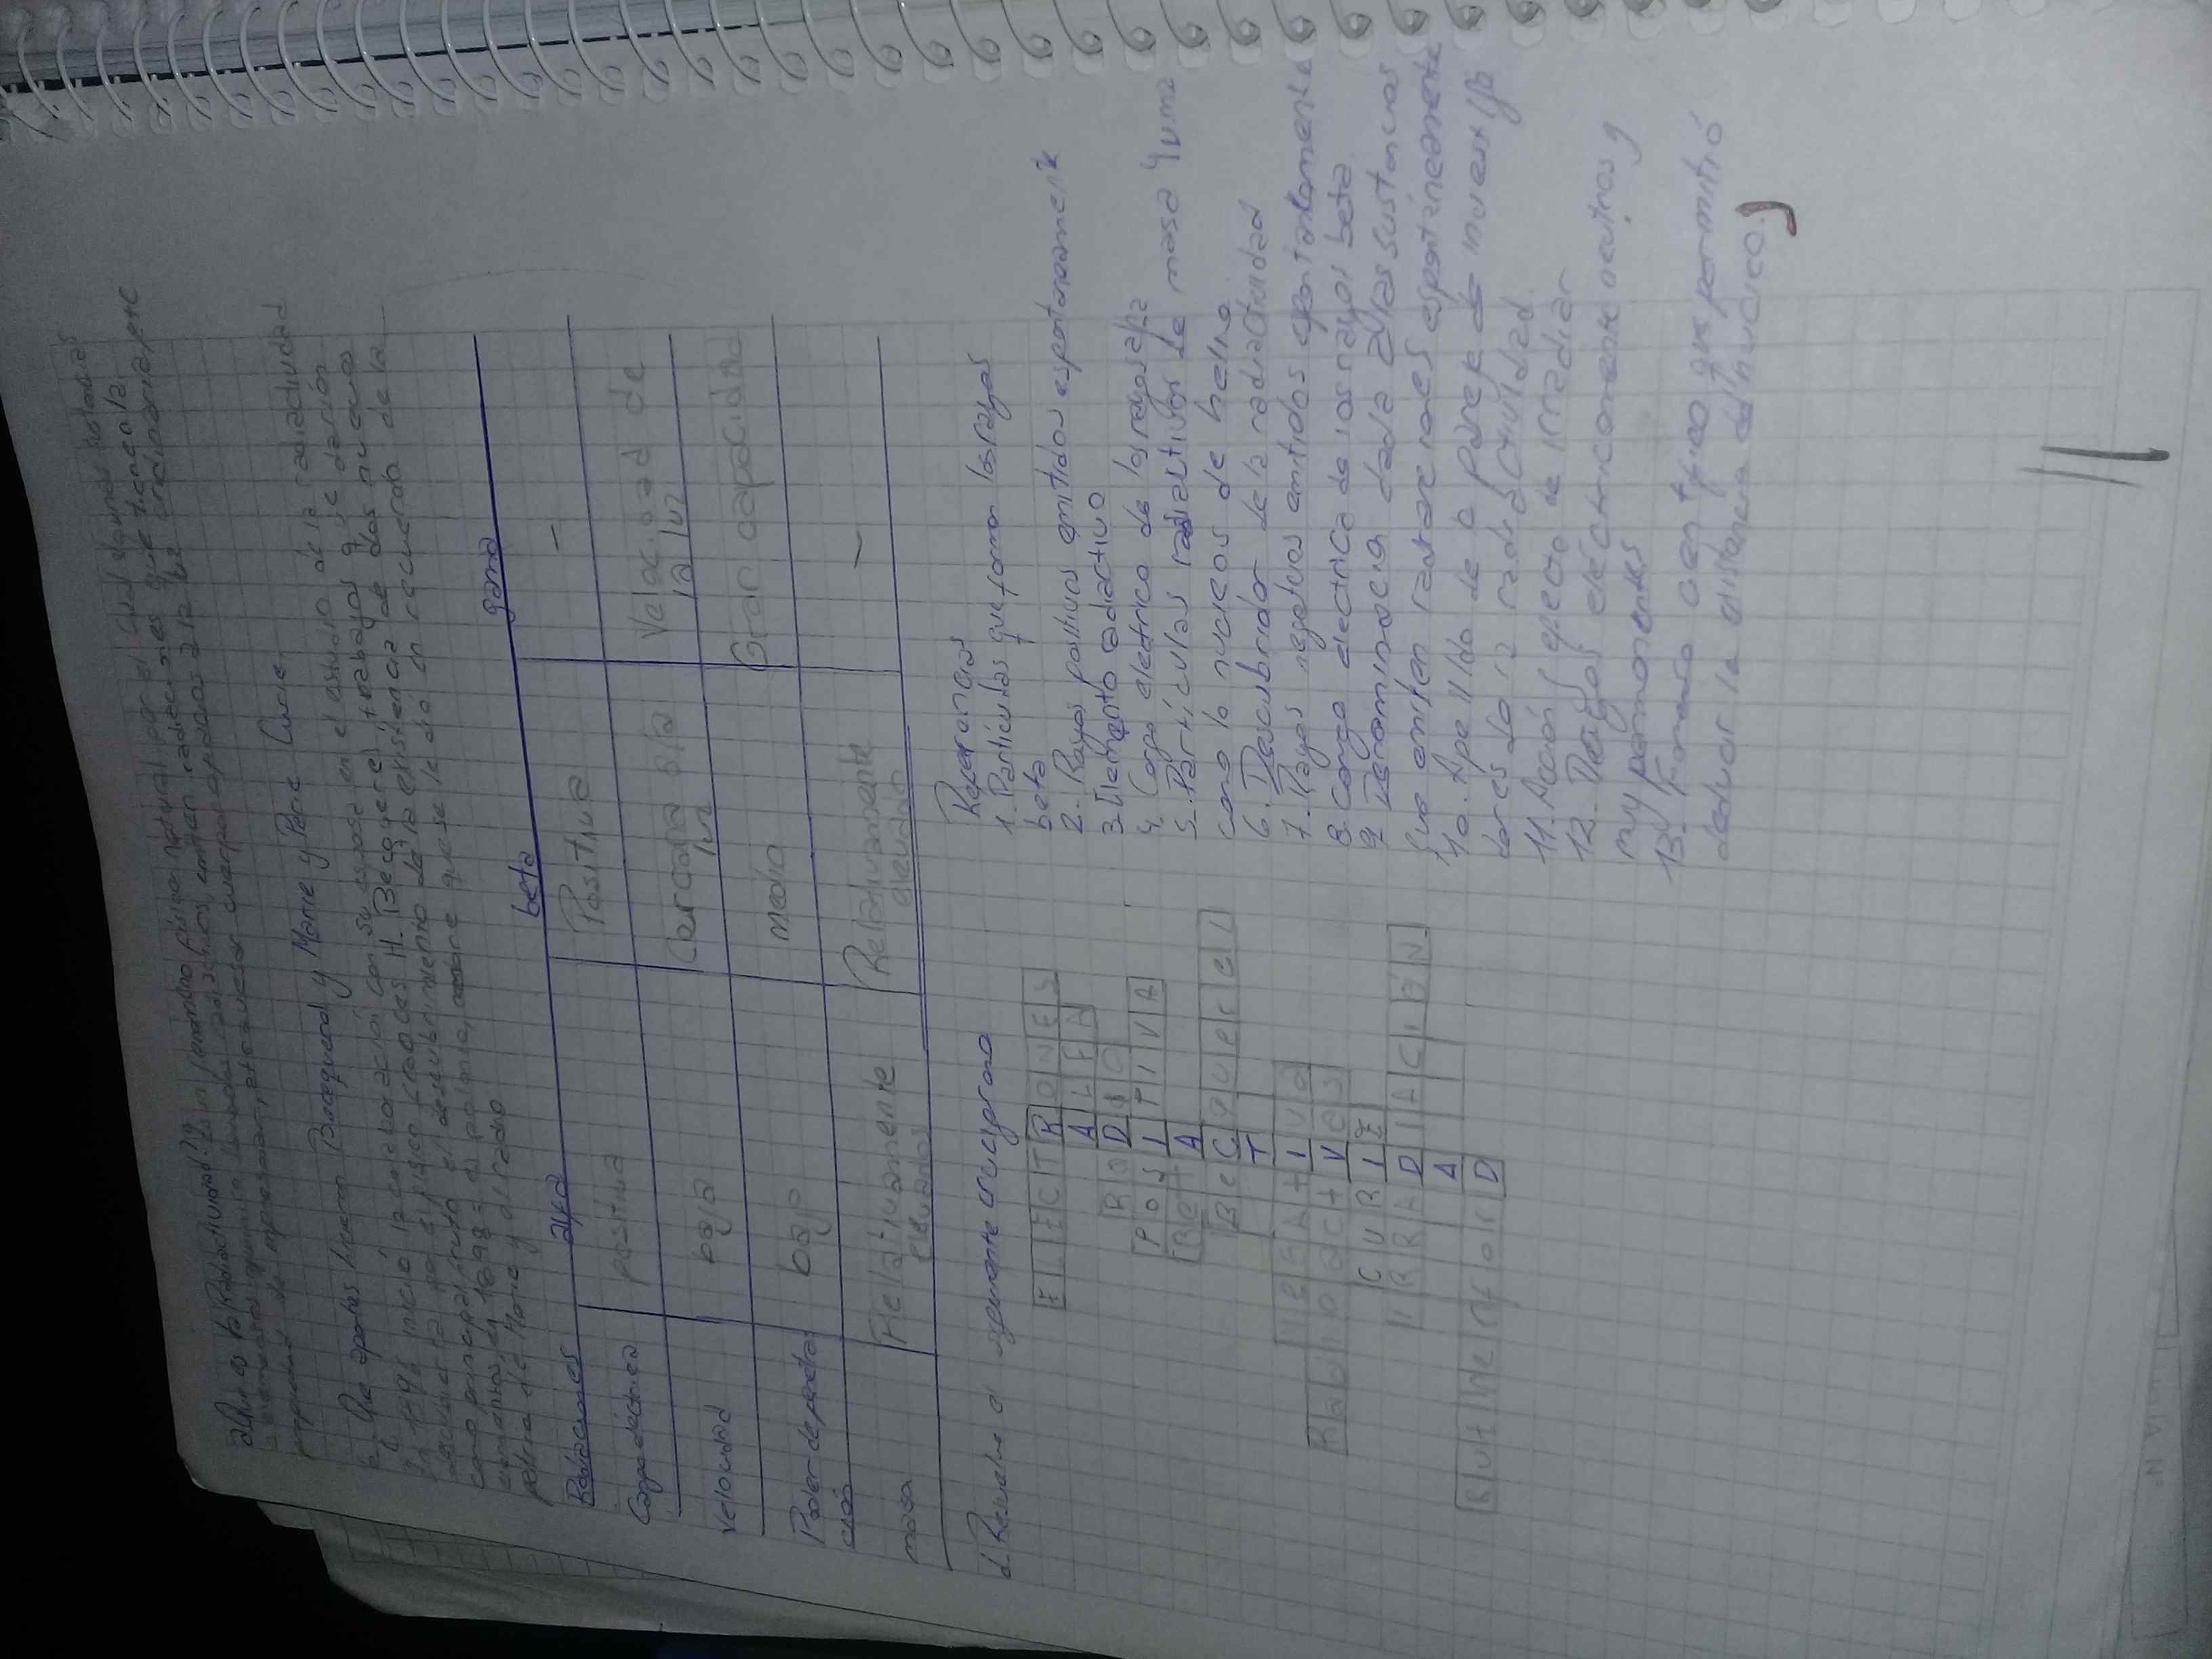 a. Que es la Radioactividad? Es un fenómeno físico natural por el cual algunas sustancias
o elementos químicos llamados radiactivos, emiten radiaciones que tienen la
propiedad de impresionar, atravesar cuerpos opacos a la luz ordinaria, etc
b. Que aportes hicieron Becquerel y Marie y Pierre Curie
En 1896 inició la
colaboración con su esposo en el estudio de la radiactividad
descubierta por el físico francés H. Becquerel, trabajos que darían
como principal fruto el descubrimiento de la existencia de dos nuevos
elementos, en 1898: el polonio, nombre que se le dio en recuerdo de la
patria de Marie y el radio
Radiaciones alfa beta gama
Carga eléctrica positiva Positiva —
Velocidad baja Cercana a la luz Velocidad de la luz
Poder de penetración bajo medio Gran capacidad
masa Relativamente elevados Relativamente elevados —
d. Resuelve el siguiente crucigrama
ELECTRONES
ALFA
RADIO
POSITIVA
Beta
BeCquerel
T
NEGATIVO
Radioactives
CURIE
IRRADIACIÓN
A
RutherforD
Referencias
1. Partículas que forman los rayos
beta
2. Rayos positivos emitidos espontaneamente
3. Elemento radiactivo
4. Carga electrica de los rayos alfa
5. Partículas radiactivas de masa 4uma
como lo nucleos de helio
6. Descubridor de la radiactividad
7. Rayos negativos emitidos espontaneamente
8. Carga electrica de los rayos beta
9. Denominación dada a las sustancias
que emiten radiaciones espontáneamente
10. Apellido de la pareja de investiga
dores de la radiactividad
11. Acción y efecto de irradiar
12. Rayos eléctricamente neutros y
muy penetrantes
13. Famoso científico que permitió
deducir la existencia del núcleo.